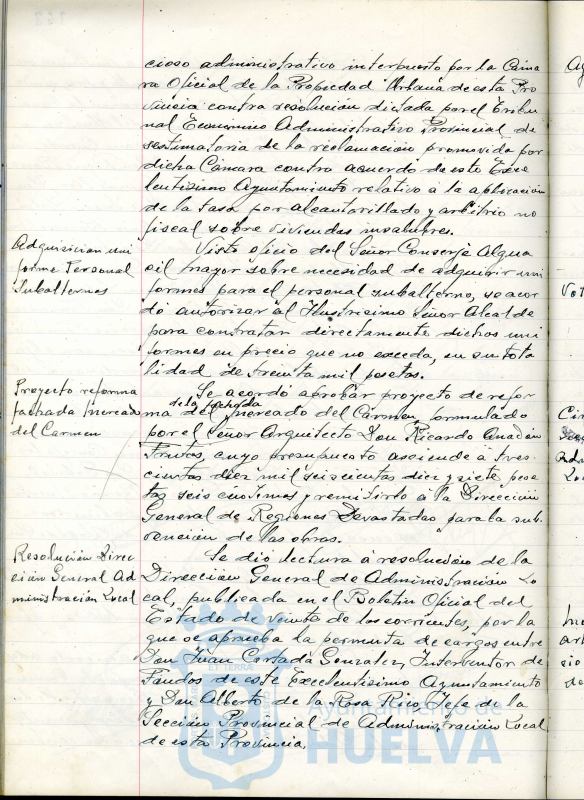 cioso administrativo interpuesto por la Cáma
ra Oficial de la Propiedad Urbana de esta Pro
vincia contra resolución dictada por el Tribu
nal Económico Administrativo Provincial de
sestimatoria de la reclamación promovida por
dicha Cámara contra acuerdo de este Exce
lentísimo Ayuntamiento relativo a la aplicación
de la tasa por alcantarillado y arbitrio no
fiscal sobre viviendas insalubres.
Adquisición uni
forme Personal
Subalternos
Visto oficio del Señor Conserje Algua
cil mayor sobre necesidad de adquirir uni
formes para el personal subalterno, se acor
dó autorizar al Ilustrísimo Señor Alcalde
para contratar directamente dichos uni
formes en precio que no exceda, en su tota
lidad de treinta mil pesetas.
Proyecto reforma
fachada mercado
del Carmen
Se acordó aprobar proyecto de refor
de la fachada
ma del mercado del Carmen, formulado
por el Señor Arquitecto Don Ricardo Anadón
Frutos, cuyo presupuesto asciende a tres
cientas diez mil seiscientas diez y siete pese
tas seis centimos y remitirlo a la Dirección
General de Regiones Devastadas para la sub
vención de las obras.
Resolución Direc
ción General Ad
ministración Local
Se dió lectura a resolución de la
Dirección General de Administración Lo
cal, publicada en el Boletín Oficial del
Estado de veinte de los corrientes, por la
que se aprueba la permuta de cargos entre
Don Juan Cortada Gonzalez, Interventor de
Fondos de este Excelentísimo Ayuntamiento
y Don Alberto de la Rosa Rico, Jefe de la
Sección Provincial de Administración Local
de esta Provincia.
Ayuntamiento de
HUELVA